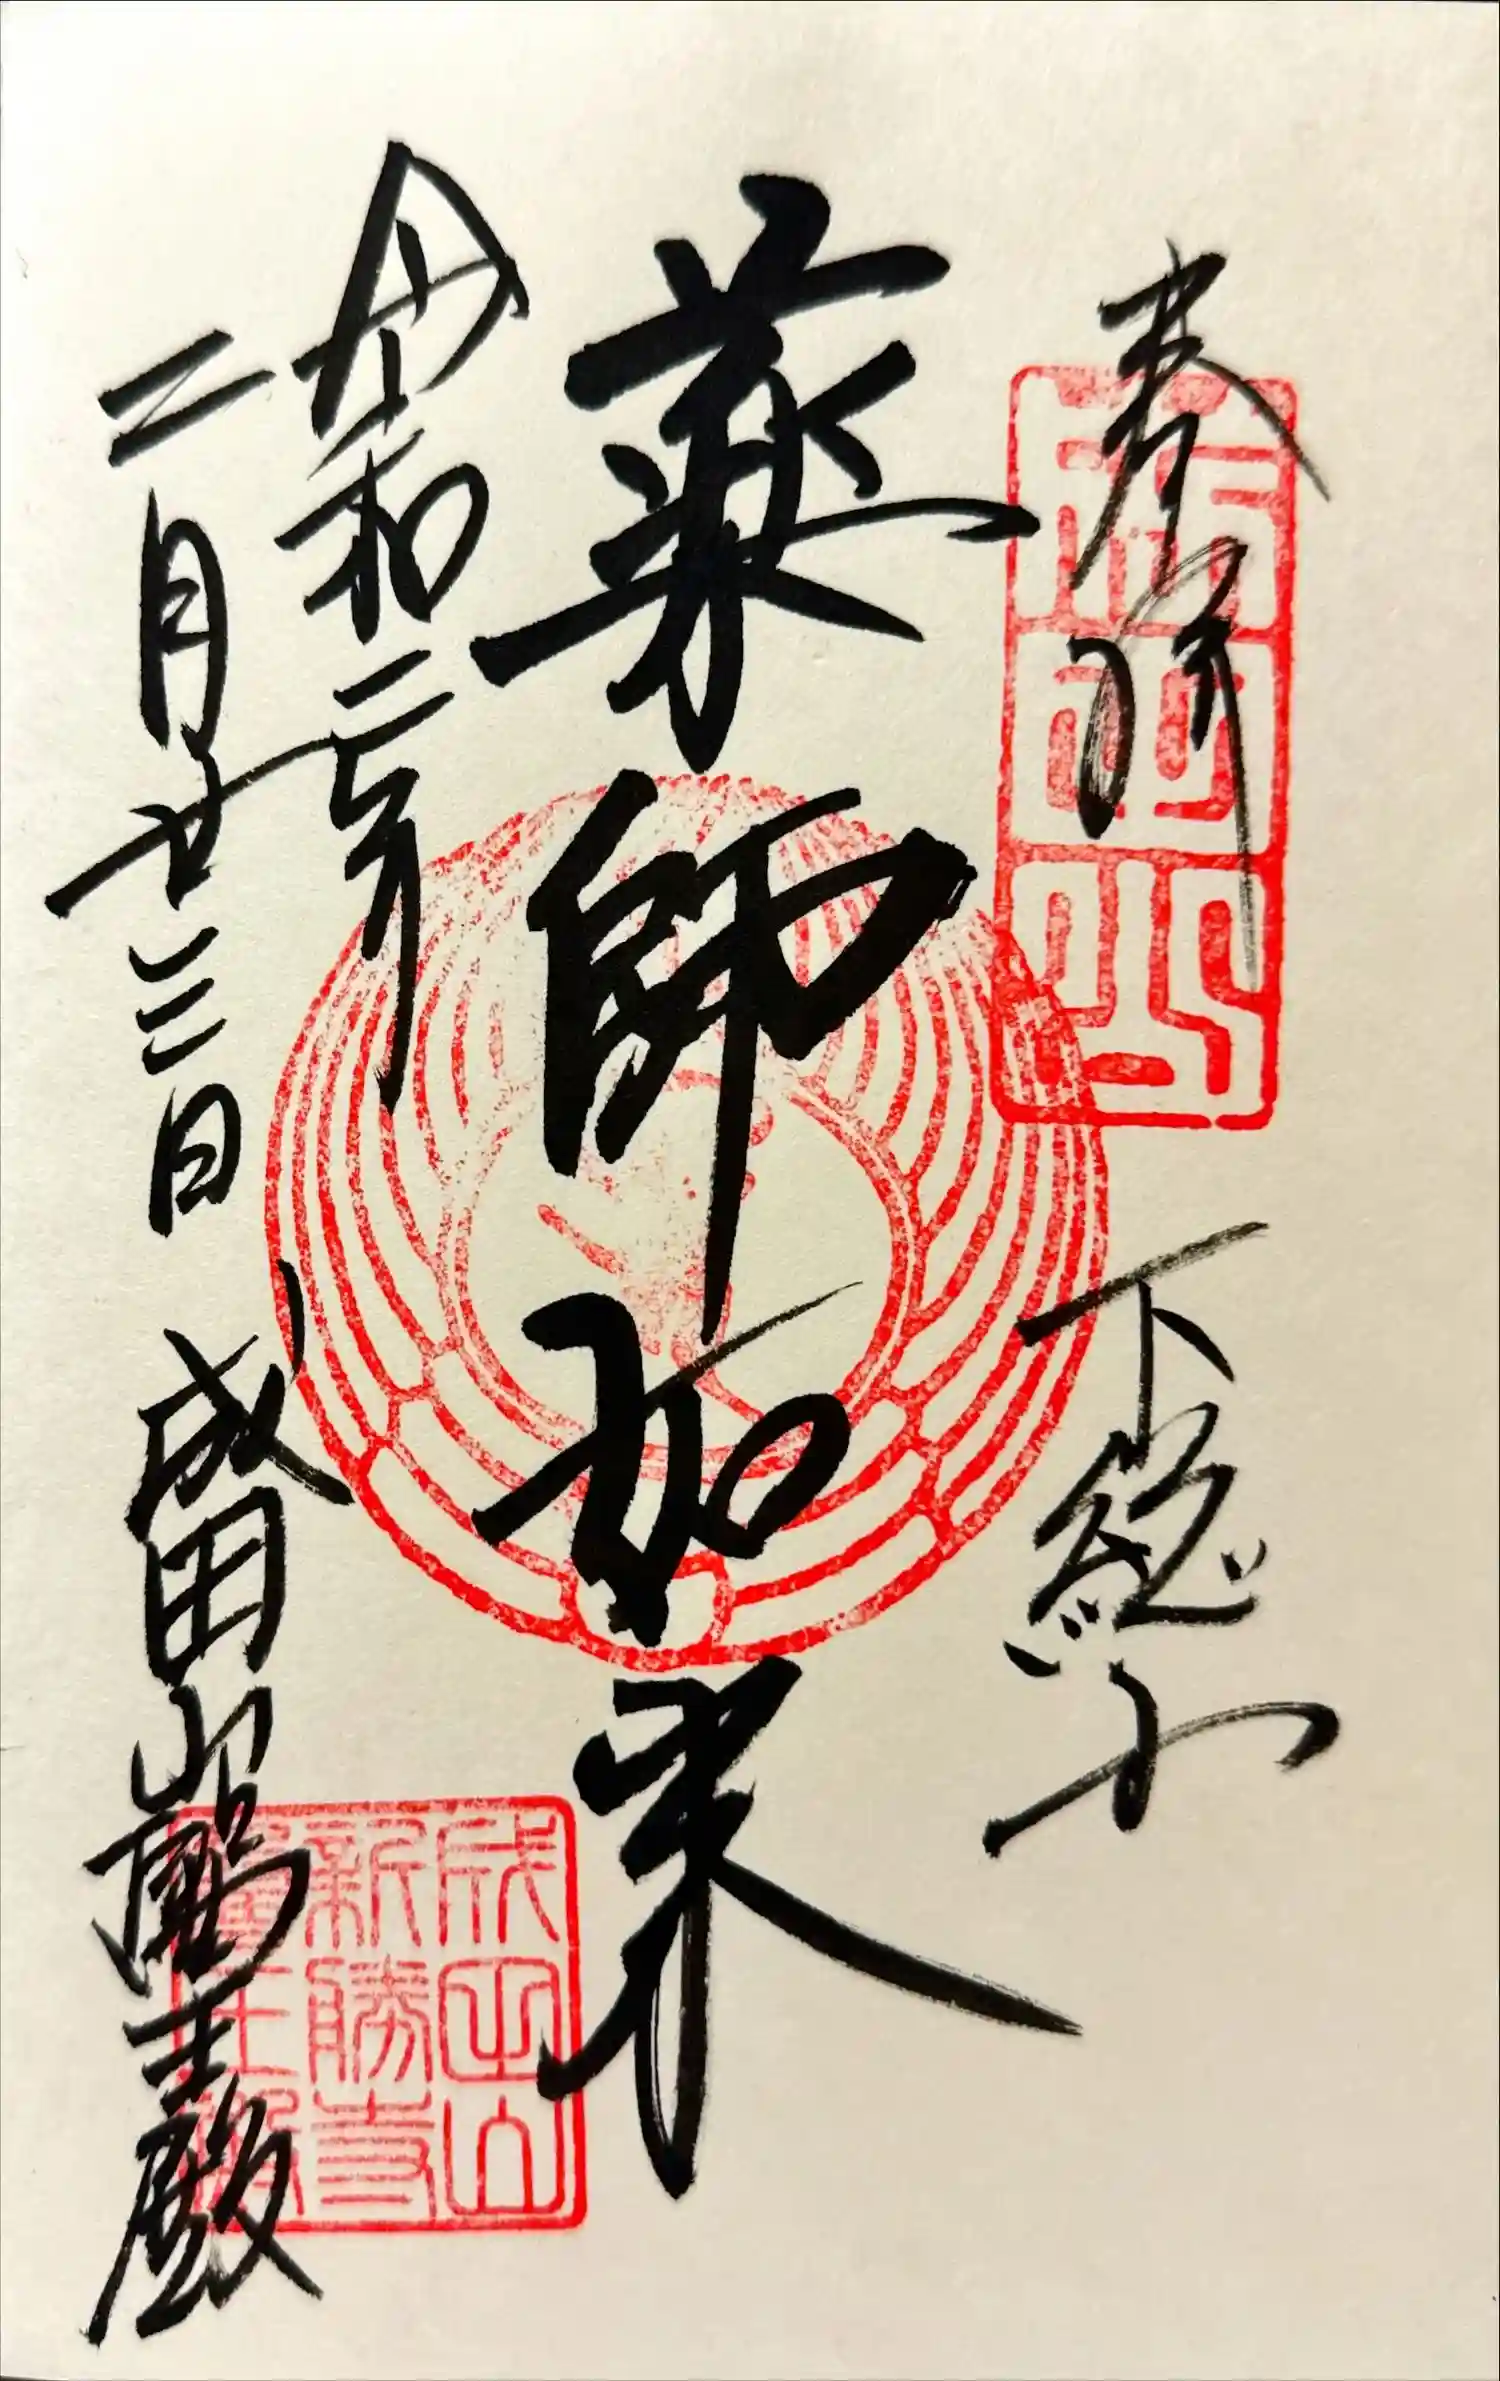 奉拝 下總
成田山
薬師如来
令和二年
二月廿三日 成田山醫王殿
成田山
新勝寺
醫王殿